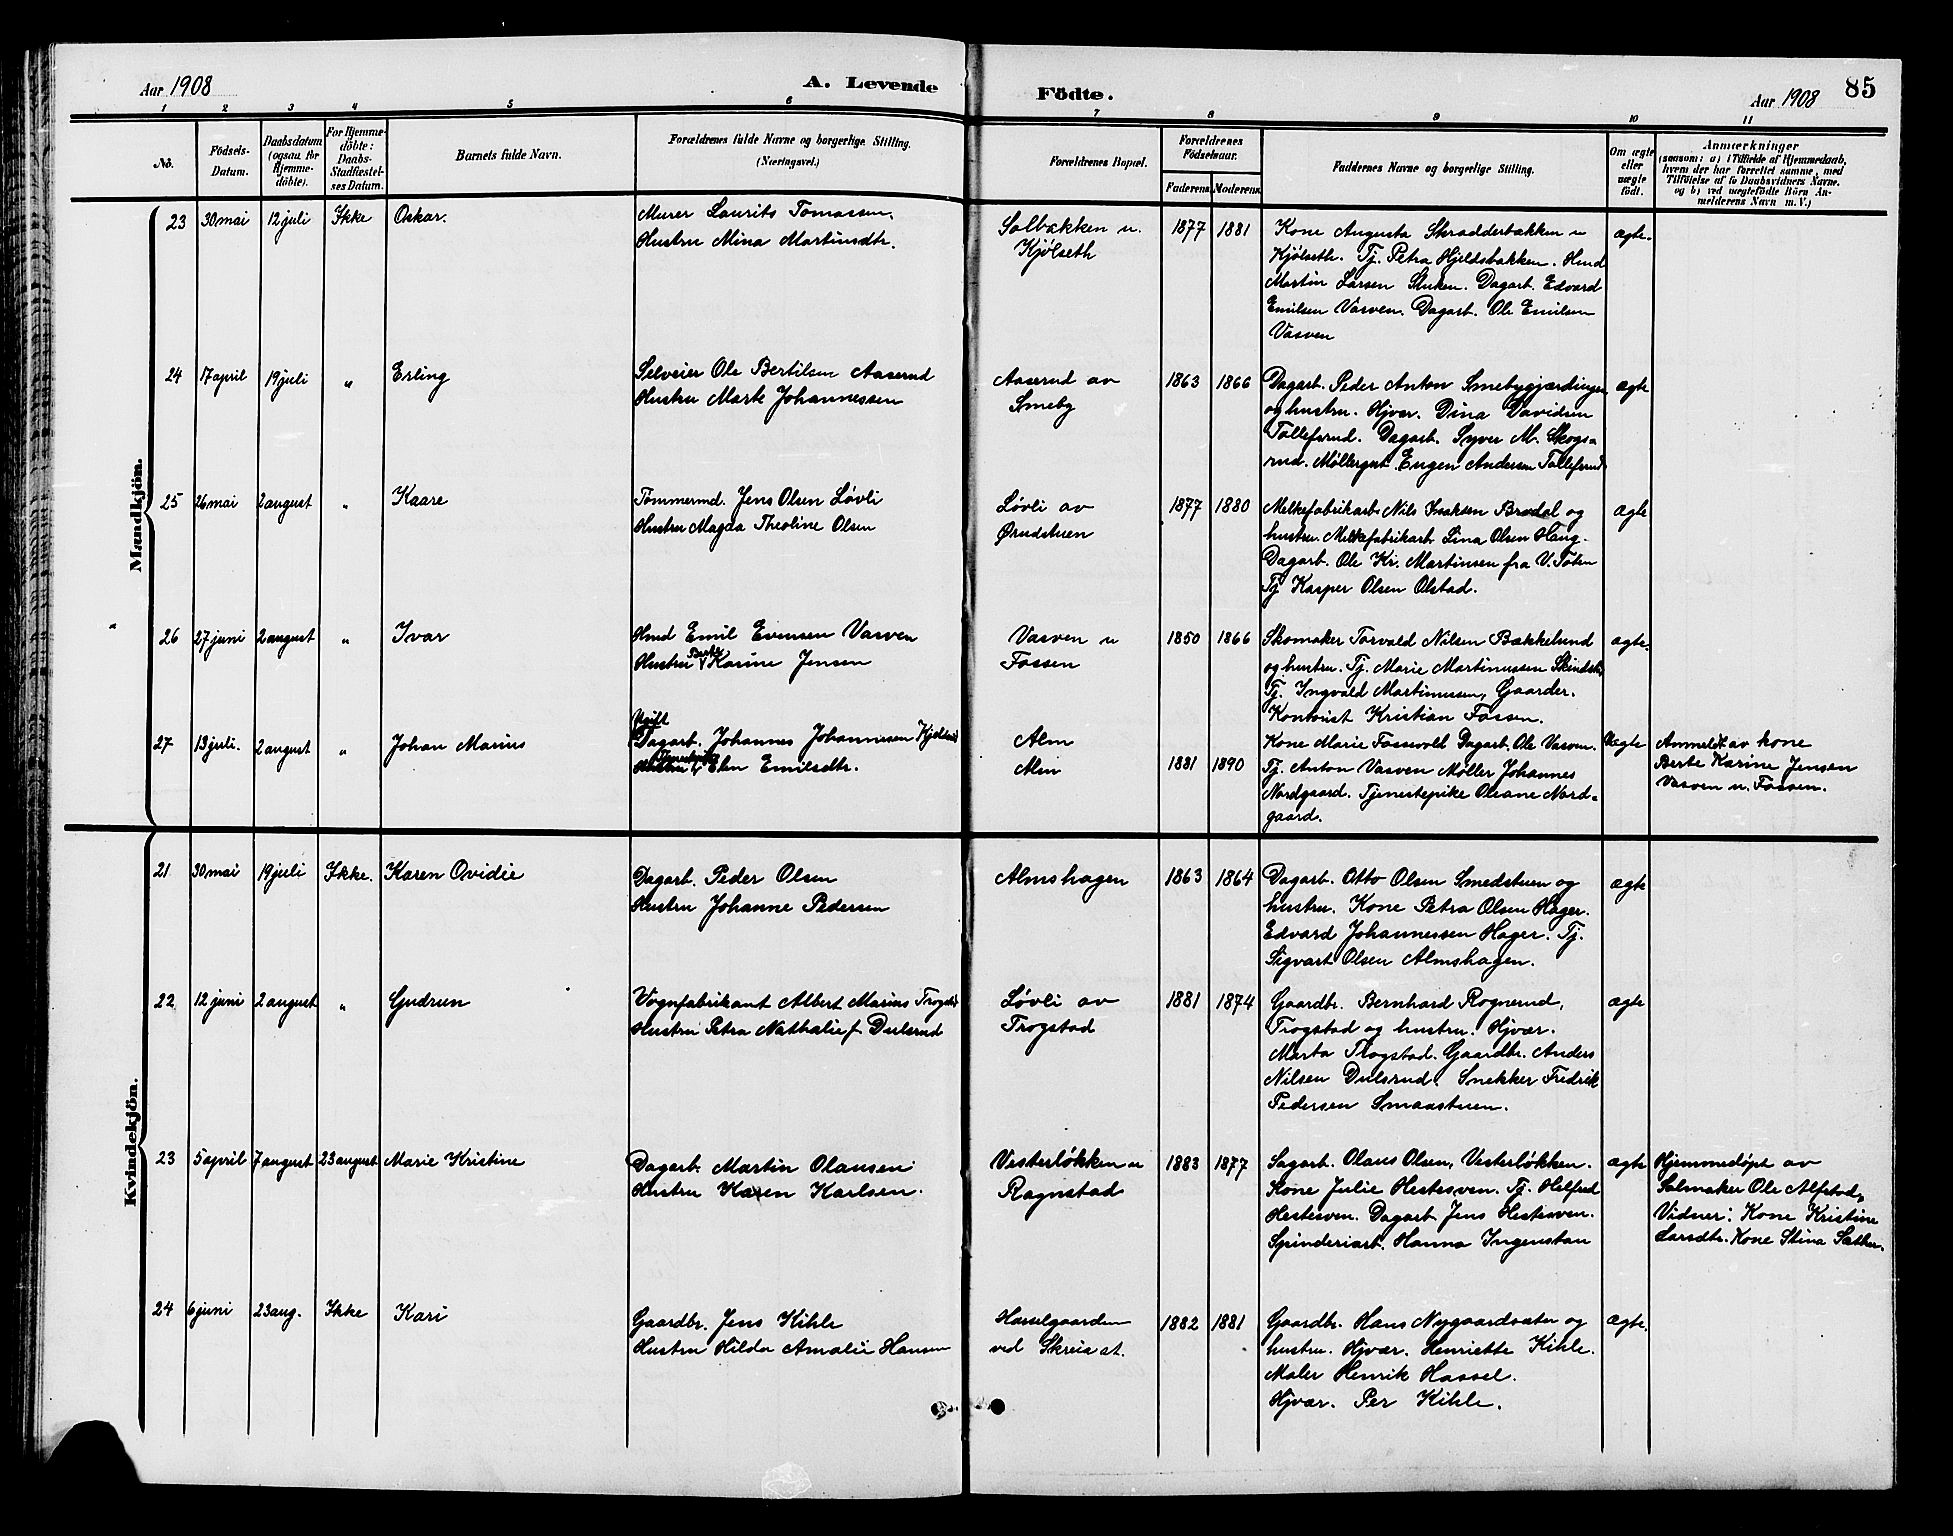 Aar 1908
A. Levende
Födte.
Aar 1908
85
1 2 3 4 5 6 7 8 9 10 11
No.
Födsels-
Datum.
Daabsdatum
(ogsaa for
Hjemme-
döbte).
For Hjemme-
döbte:
Daabs-
Stadfæstel-
ses Datum.
Barnets fulde Navn.
Forældrenes fulde Navne og borgerlige Stilling.
(Næringsvei.)
Forældrenes Bopæl.
Forældrenes
Födselsaar.
Faderens
Moderens
Faddernes Navne og borgerlige Stilling.
Om ægte
eller
uægte
födt.
Anmærkninger
(saasom: a) i Tilfælde af Hjemmedaab,
hvem der har forrettet samme, med
Tilföielse af to Daabsvidners Navne,
og b) ved uægtefödte Börn An-
melderens Navn m. V.)
Mandkjön.
23 30 mai 12 juli Ikke Oskar.
Murer Laurits Tomassen,
Hustru Mina Martinsdtr.
Solbakken u.
Kjölseth
1877 1881
Kone Augusta Skradderbakken u
Kjölseth. Tj. Petra Hjeldsbakken. Hmd
Martin Larsen Stuken. Dagarb. Edvard
Emilsen Vasven. Dagarb. Ole Emilsen
Vasven
ægte.
24 17 april 19 juli " Erling
Selveier Ole Bertilsen Aaserud
Hustru Marte Johannessen
Aaserud av
Smeby
1863 1866
Dagarb. Peder Anton Smebygjærdingen
og hustru. Hjvær. Dina Davidsen
Tollefsrud. Dagarb. Syver M. Skogs-
rud. Møllergut Eugen Andersen Tollefsrud
ægte
25 26 mai 2 august " Kaare
Tømmermd. Jens Olsen Løvli
Hustru Magda Theoline Olsen
Løvli av
Ørudstuen
1877 1880
Melkefabrikarb. Nils Isaksen Brodal og
hustru. Melkefabrikarb. Lina Olsen Haug.
Dagarb. Ole Kr. Martinsen fra V. Toten
Tj Kasper Olsen Olstad.
ægte
26 27 juni 2 august " Ivar
Hmd Emil Evensen Vasven
Hustru Berte Karine Jensen
Vasven u
Fossen
1850 1866
Skomaker Torvald Nilsen Bækkelund
og hustru. Tj. Marie Martinussen
Tj. Ingvald Martinussen, Gaarder.
Kontorist Kristian Fossen.
ægte.
27 13 juli. 2 august " Johan Marius
Ugift
Dagarb. Johannes Johannesen
Elen Emilsdtr.
Alm
Alm
1881 1890
Kone Marie Fossevold Dagarb. Ole Vasven.
Tj. Anton Vasven Møller Johannes
Nordgaard. Tjenestepike Oleane Nord-
gaard.
Uægte
Anmeldt av kone
Berte Karine Jensen
Vasven u. Fossen.
Kvindekjön.
21 30 mai 19 juli Ikke. Karen Ovidie
Dagarb. Peder Olsen
Hustru Johanne Pedersen
Almshagen
1863 1864
Dagarb. Otto Olsen Smedstuen og
hustru. Kone Petra Olsen Hager.
Edvard Johannessen Hager. Tj.
Sigvart Olsen Almshagen.
ægte
22 12 juni 2 august " Gudrun
Vognfabrikant Albert Marius Trogstad
Hustru Petra Nathalie f Dulsrud
Løvli av
Trogstad
1881 1874
Gaardbr. Bernhard Rognerud,
Trogstad og hustru. Hjvær.
Marta Trogstad. Gaardbr. Anders
Nilsen Dulsrud. Snekker Fredrik
Pedersen Smaastuen.
ægte
23 5 april 7 august 23 august Marie Kristine
Dagarb. Martin Olausen
Hustru Karen Karlsen.
Vesterløkken u
Rognstad
1883 1877
Sagarb. Olaus Olsen, Vesterløkken.
Kone Julie Hestesven. Tj. Helfred
Hestesven. Dagarb. Jens Hestesven.
Spinderiarb. Hanna Ingenstau
ægte
Hjemmedøpt av
Salmaker Ole Alfstad,
Vidner: Kone Kristine
Larsdtr. Kone Stina Sæther.
24 6 juni 23 aug. Ikke Kari
Gaardbr. Jens Kihle
Hustru Hilda Amalie Hansen
Hasselgaarden
ved Skreia st.
1882 1881
Gaardbr. Hans Nygaardsæter og
hustru. Hjvær. Henriette Kihle.
Maler Henrik Hassel.
Hjvær. Per Kihle.
ægte.